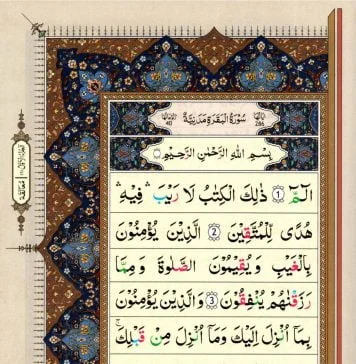 سُوْرَةُ الْبَقَرَةِ مَدَنِيَّةٌ
اٰيَاتُهَا 286
رُكُوْعَاتُهَا 40
بِسْمِ اللّٰهِ الرَّحْمٰنِ الرَّحِيْمِ
الٓمّٓ ۚ 1 ذٰلِكَ الْكِتٰبُ لَا رَيْبَ ۛ فِيْهِ ۛ
هُدًى لِّلْمُتَّقِيْنَ 2 الَّذِيْنَ يُؤْمِنُوْنَ
بِالْغَيْبِ وَيُقِيْمُوْنَ الصَّلٰوةَ وَمِمَّا
رَزَقْنٰهُمْ يُنْفِقُوْنَ 3 وَالَّذِيْنَ يُؤْمِنُوْنَ
بِمَاۤ اُنْزِلَ اِلَيْكَ وَمَاۤ اُنْزِلَ مِنْ قَبْلِكَ ۚ